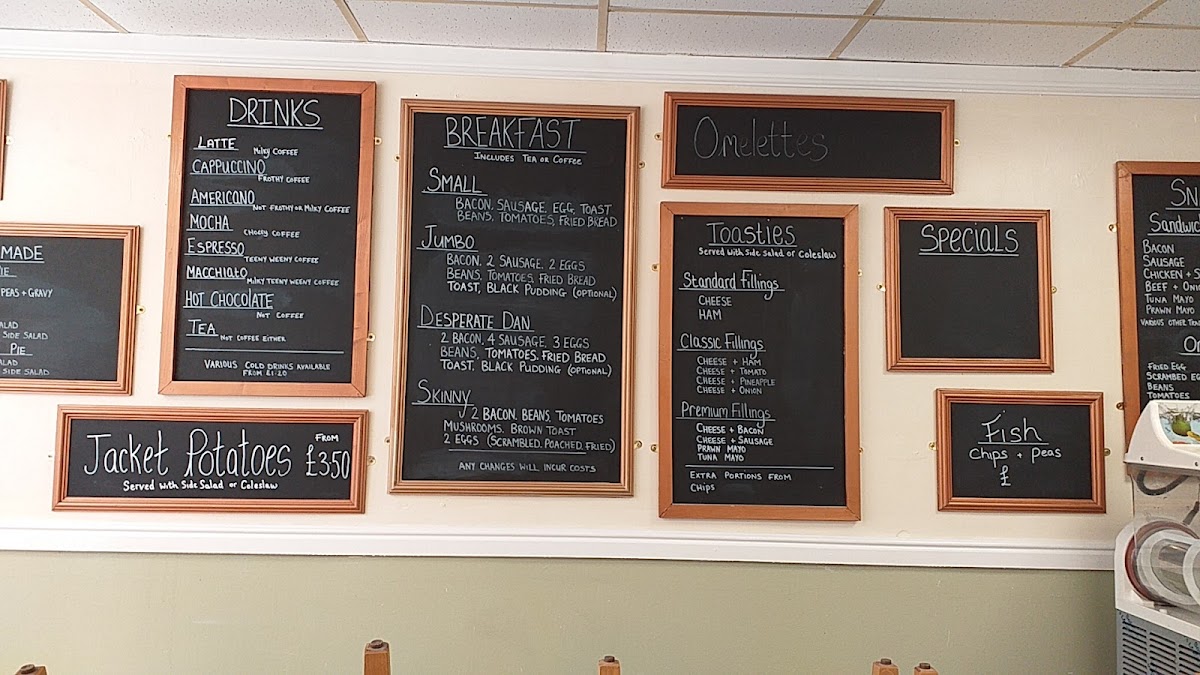 MADE
PIE
PEAS + GRAVY
SALAD
SIDE SALAD
PIE
SALAD
SIDE SALAD
DRINKS
LATTE MILKY COFFEE
CAPPUCCINO FROTHY COFFEE
AMERICANO NOT FROTHY OR MILKY COFFEE
MOCHA CHOCLY COFFEE
ESPRESSO TEENY WEENY COFFEE
MACCHIATO MILKY TEENY WEENY COFFEE
HOT CHOCOLATE NOT COFFEE
TEA NOT COFFEE EITHER
VARIOUS COLD DRINKS AVAILABLE
FROM £1.20
Jacket Potatoes FROM £3.50
Served with Side Salad or Coleslaw
BREAKFAST
INCLUDES TEA OR COFFEE
SMALL
BACON, SAUSAGE, EGG, TOAST
BEANS, TOMATOES, FRIED BREAD
JUMBO
BACON, 2 SAUSAGE, 2 EGGS
BEANS, TOMATOES, FRIED BREAD
TOAST, BLACK PUDDING (OPTIONAL)
DESPERATE DAN
2 BACON, 4 SAUSAGE, 3 EGGS
BEANS, TOMATOES, FRIED BREAD
TOAST, BLACK PUDDING (OPTIONAL)
SKINNY
2 BACON, BEANS, TOMATOES
MUSHROOMS, BROWN TOAST
2 EGGS (SCRAMBLED, POACHED, FRIED)
ANY CHANGES WILL INCUR COSTS
Omelettes
Toasties
Served with Side Salad or Coleslaw
Standard Fillings
CHEESE
HAM
Classic Fillings
CHEESE + HAM
CHEESE + TOMATO
CHEESE + PINEAPPLE
CHEESE + ONION
Premium Fillings
CHEESE + BACON
CHEESE + SAUSAGE
PRAWN MAYO
TUNA MAYO
EXTRA PORTIONS FROM
CHIPS
SPECIALS
Fish
Chips + Peas
£
SN
Sandwic
BACON
SAUSAGE
CHICKEN + S
BEEF + ONIO
TUNA MAYO
PRAWN MAYO
VARIOUS OTHER
On
FRIED EGG
SCRAMBLED EG
BEANS
TOMATOES